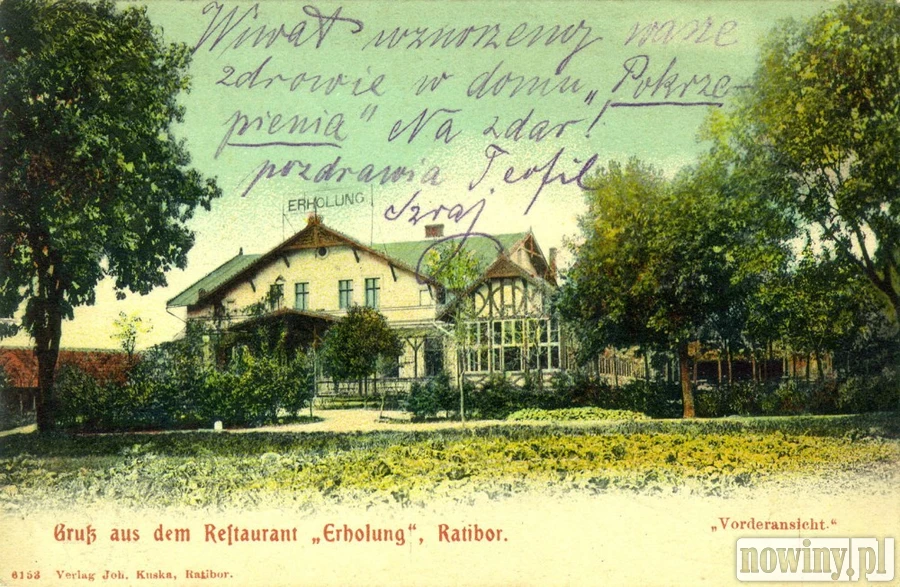 Wiwat wznoszemy wasze
zdrowie w domu „Pokrze-
pienia“ Na zdar!
pozdrawia Teofil
Szraj
ERHOLUNG
Gruß aus dem Reſtaurant „Erholung“, Ratibor.
„Vorderansicht.“
6153 Verlag Joh. Kuska, Ratibor.
nowiny.pl